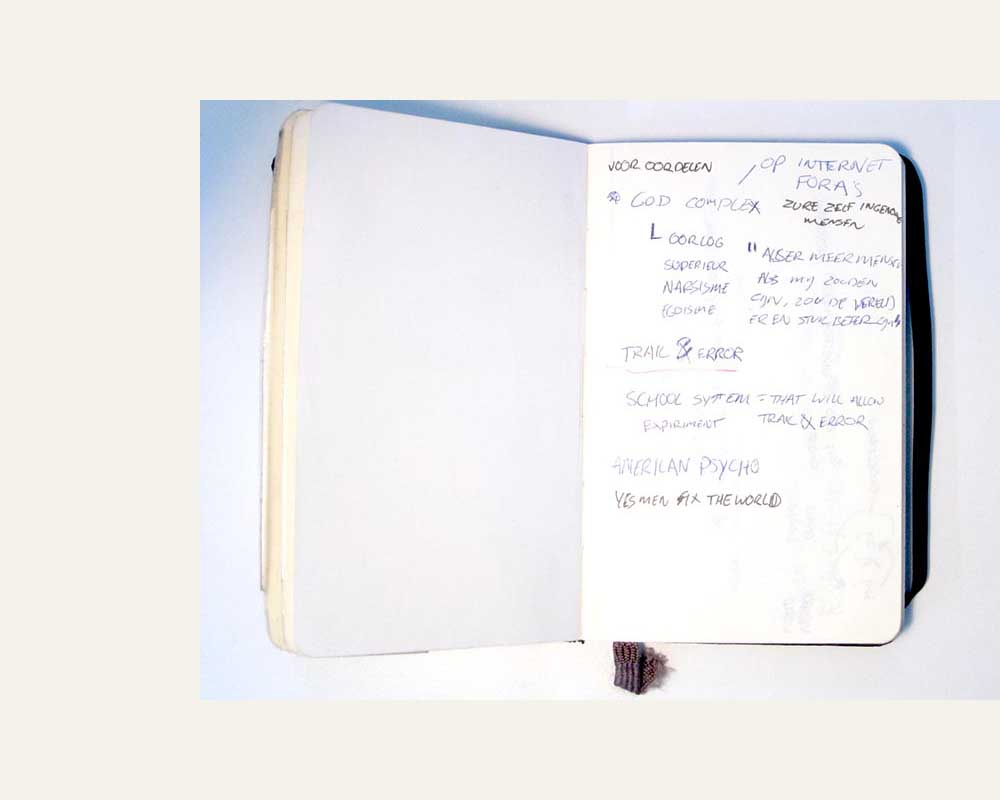 VOOR OORDELEN
OP INTERNET
FORA'S
GOD COMPLEX
ZURE ZELF
MENSEN
OORLOG
SUPERIEUR
NARSISME
EGOISME
" ALS ER MEER MENSEN
ALS MIJ ZOUDEN
ZIJN, ZOU DE WERELD
ER EN STUK BETER
TRAIL & ERROR
SCHOOL SYSTEM = THAT WILL ALLOW
EXPIRIMENT TRAIL & ERROR
AMERICAN PSYCHO
YES MEN FIX THE WORLD